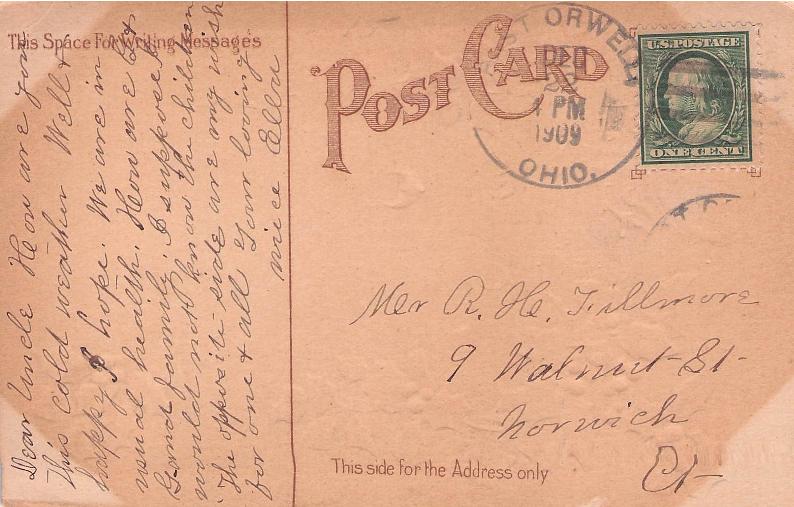 This Space For Writing Messages
POST CARD
EAST ORWELL
DEC
22
1 PM
1909
OHIO.
U.S. POSTAGE
ONE CENT
Dear Uncle How are you
this cold weather Well +
happy I hope. We are in
usual health. How are Bt
G and family. I suppose I
would not know the children
The opposite side are my wish
for one + all Your loving
niece Ella
Mr R. H. Fillmore
9 Walnut St-
Norwich
Ct-
This side for the Address only